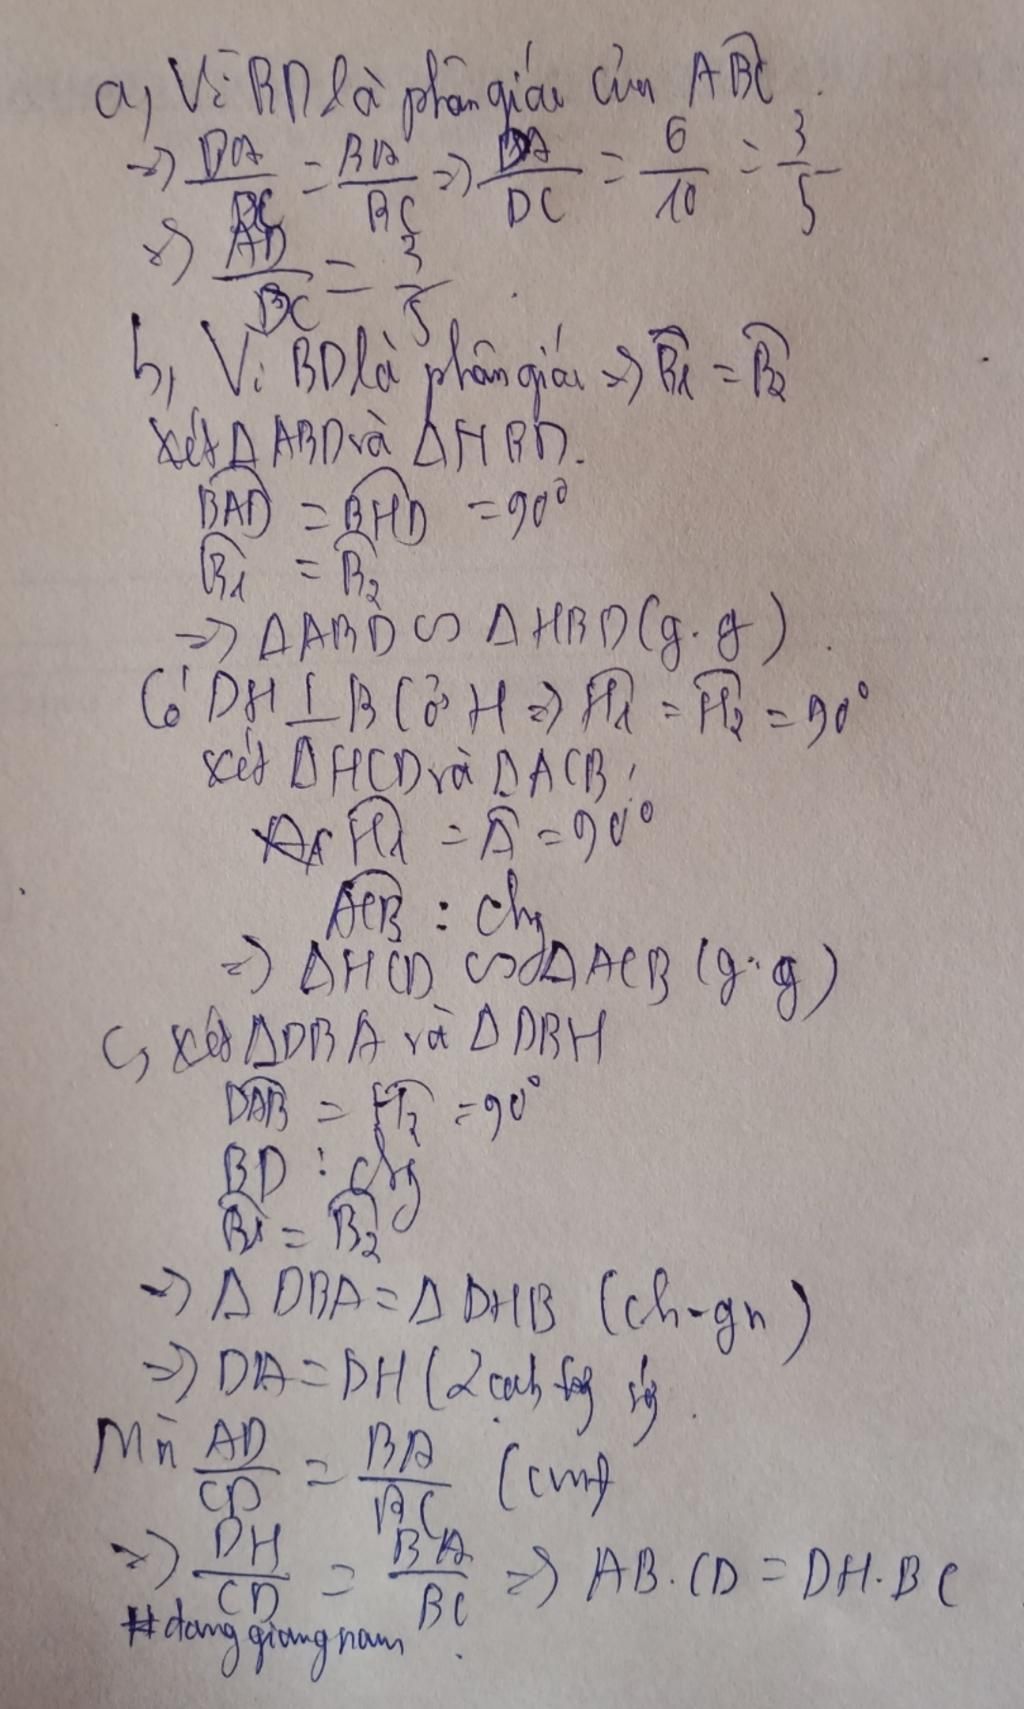 a, Vì BD là phân giác của ABC
=> DA/BC = BA/BC => DA/DC = 6/10 = 3/5
=> AD/BC = 3/5
b, Vì BD là phân giác => B1 = B2
xét Δ ABD và Δ HBD.
BAD = BHD = 90°
B1 = B2
=> Δ ABD ∽ Δ HBD (g.g)
Có DH ⊥ BC ở H => H1 = H2 = 90°
xét Δ HCD và Δ ACB:
H1 = A = 90°
ACB : chg
=> Δ HCD ∽ Δ ACB (g.g)
c, xét Δ DBA và Δ DBH
DAB = H2 = 90°
BD : chg
B1 = B2
=> Δ DBA = Δ DHB (ch-gn)
=> DA = DH (2 cah tg ứg
Mà AD/CD = BA/BC (cmt)
=> DH/CD = BA/BC => AB.CD = DH.BC
#danggiangnam